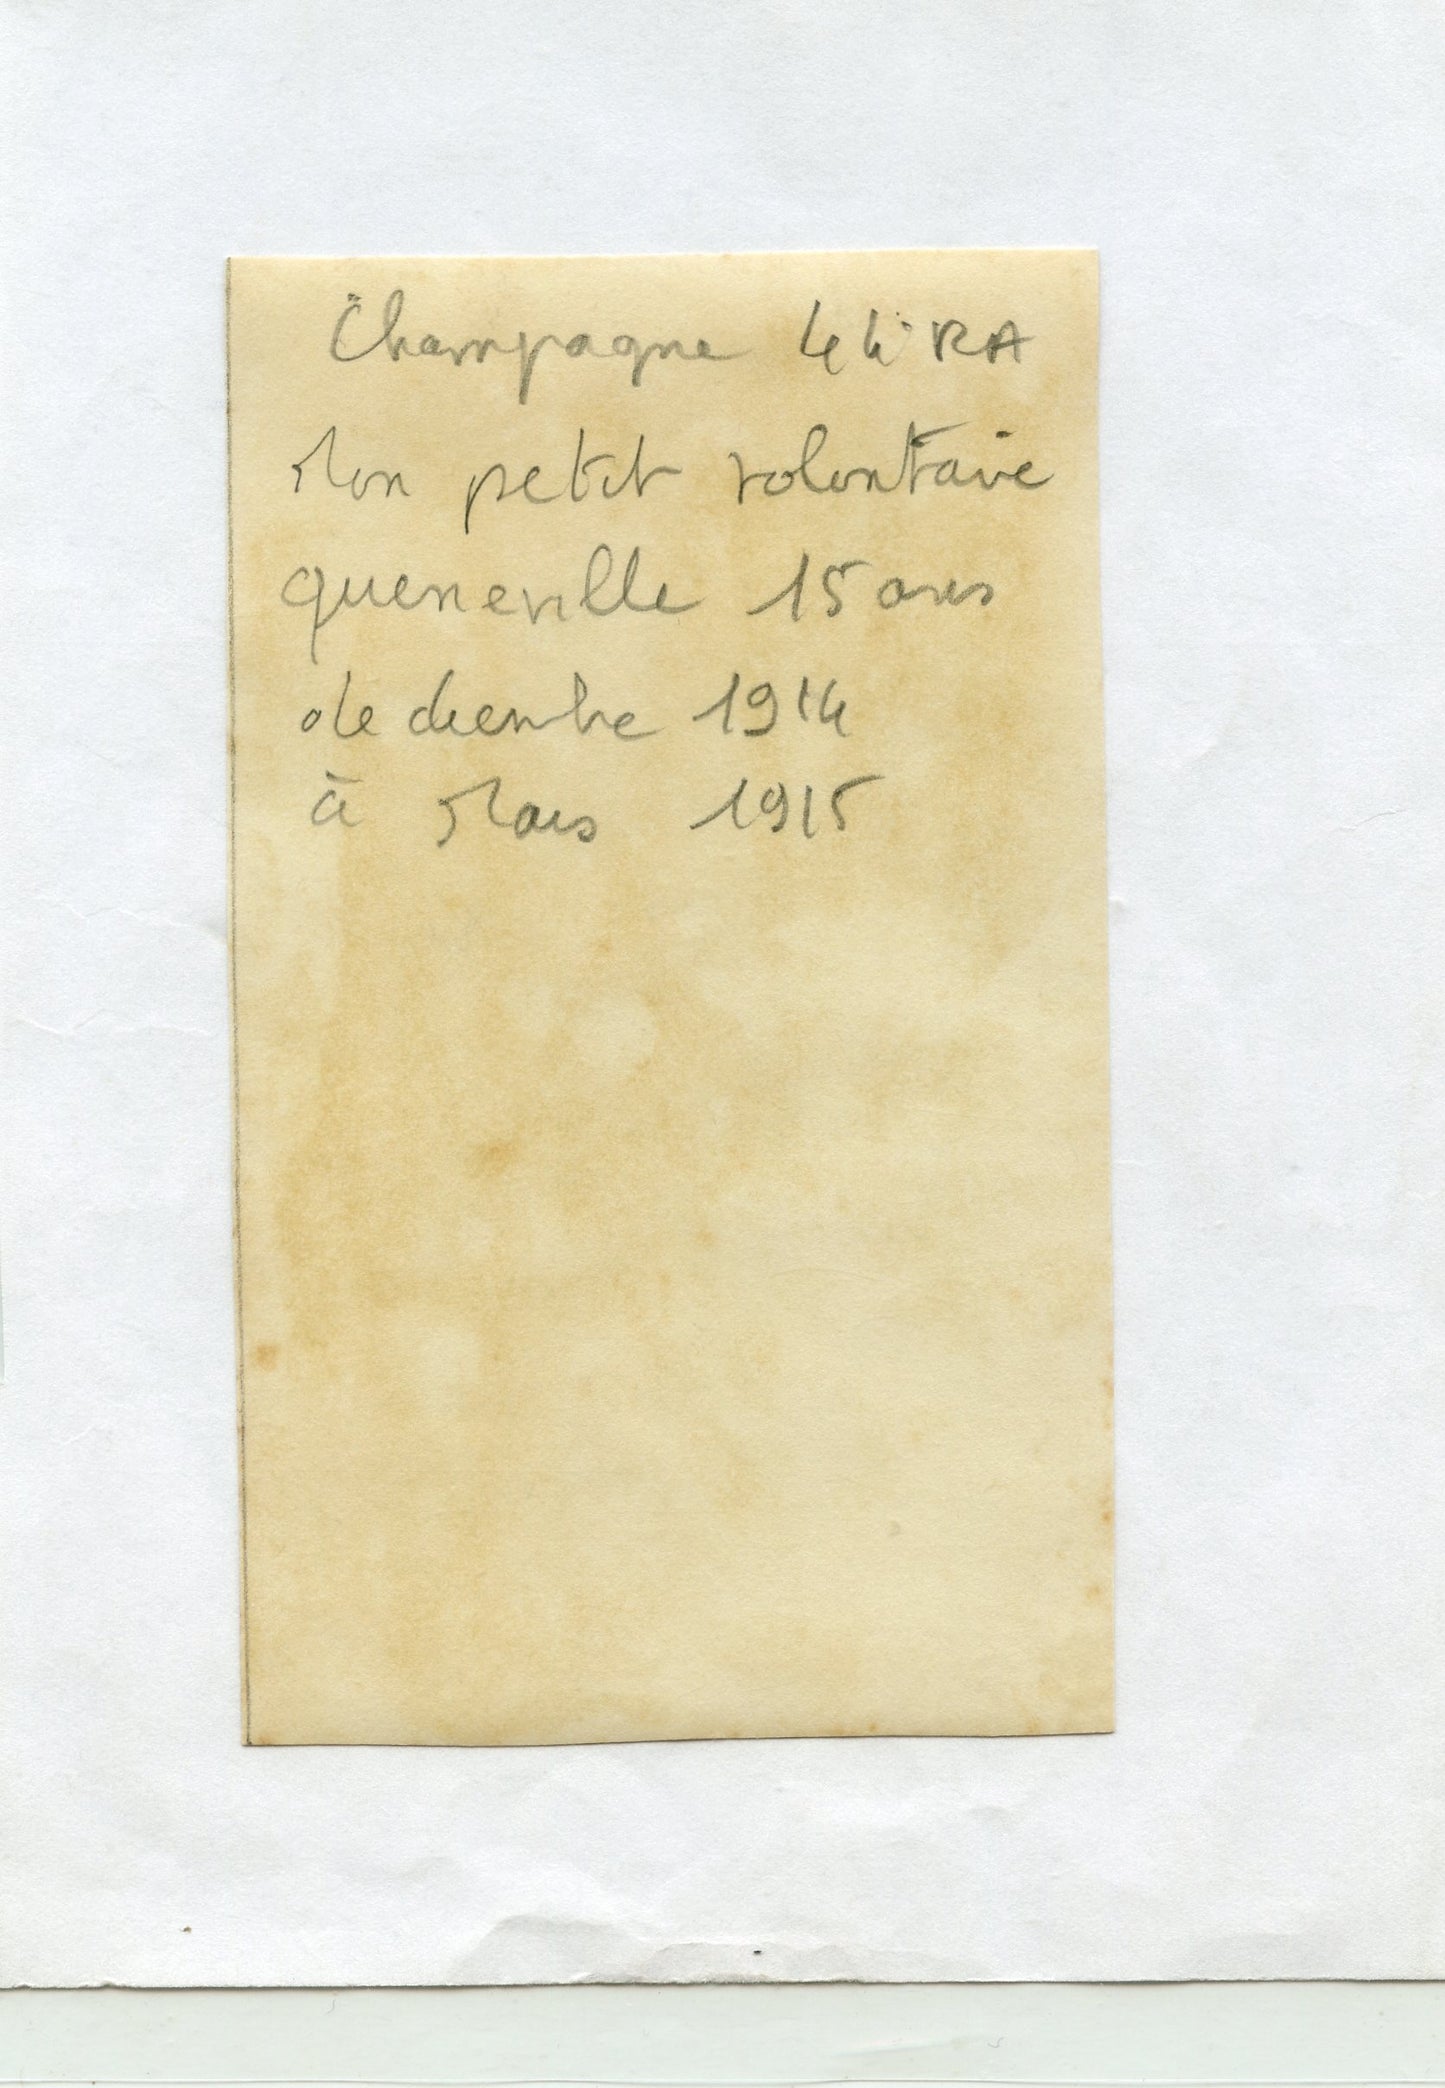 Champagne 44e RA
Mon petit volontaire
queneville 15 ans
de decembre 1914
à Mars 1915